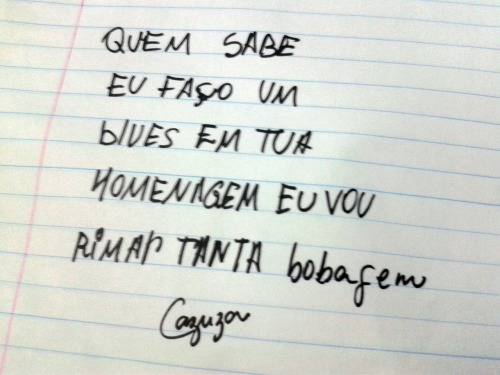 QUEM SABE
EU FAÇO UM
blUES EM TUA
HOMENAGEM EU VOU
RiMAr TANTA bobagem
Cazuza